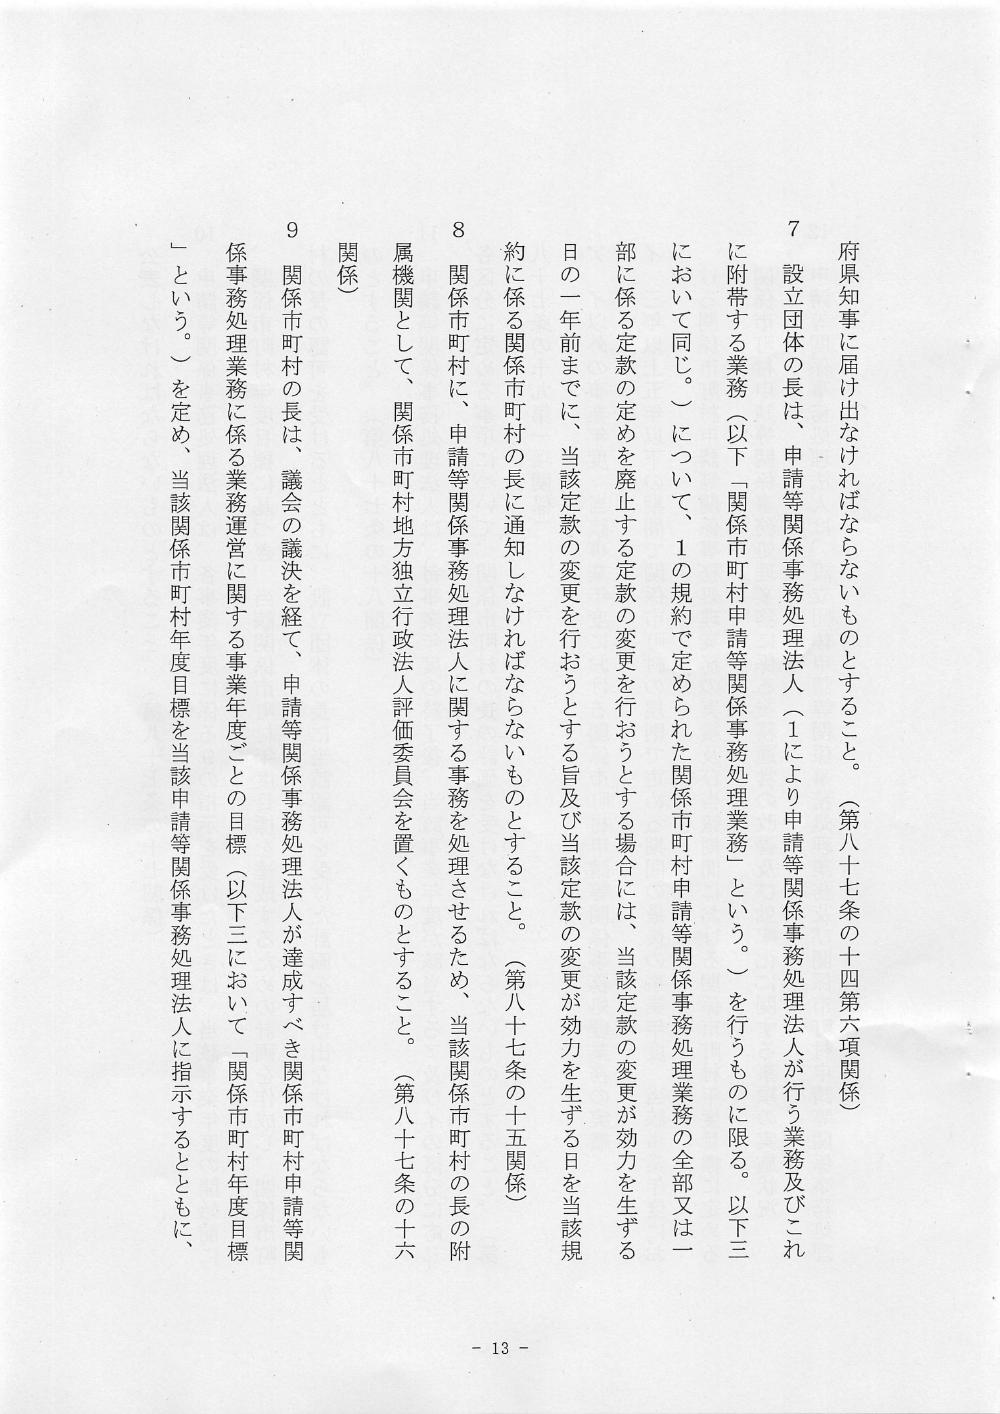 府県知事に届け出なければならないものとすること。（第八十七条の十四第六項関係）
７　設立団体の長は、申請等関係事務処理法人（１により申請等関係事務処理法人が行う業務及びこれ
に附帯する業務（以下「関係市町村申請等関係事務処理業務」という。）を行うものに限る。以下三
において同じ。）について、１の規約で定められた関係市町村申請等関係事務処理業務の全部又は一
部に係る定款の定めを廃止する定款の変更を行おうとする場合には、当該定款の変更が効力を生ずる
日の一年前までに、当該定款の変更を行おうとする旨及び当該定款の変更が効力を生ずる日を当該規
約に係る関係市町村の長に通知しなければならないものとすること。（第八十七条の十五関係）
８　関係市町村に、申請等関係事務処理法人に関する事務を処理させるため、当該関係市町村の長の附
属機関として、関係市町村地方独立行政法人評価委員会を置くものとすること。（第八十七条の十六
関係）
９　関係市町村の長は、議会の議決を経て、申請等関係事務処理法人が達成すべき関係市町村申請等関
係事務処理業務に係る業務運営に関する事業年度ごとの目標（以下三において「関係市町村年度目標
」という。）を定め、当該関係市町村年度目標を当該申請等関係事務処理法人に指示するとともに、
- 13 -